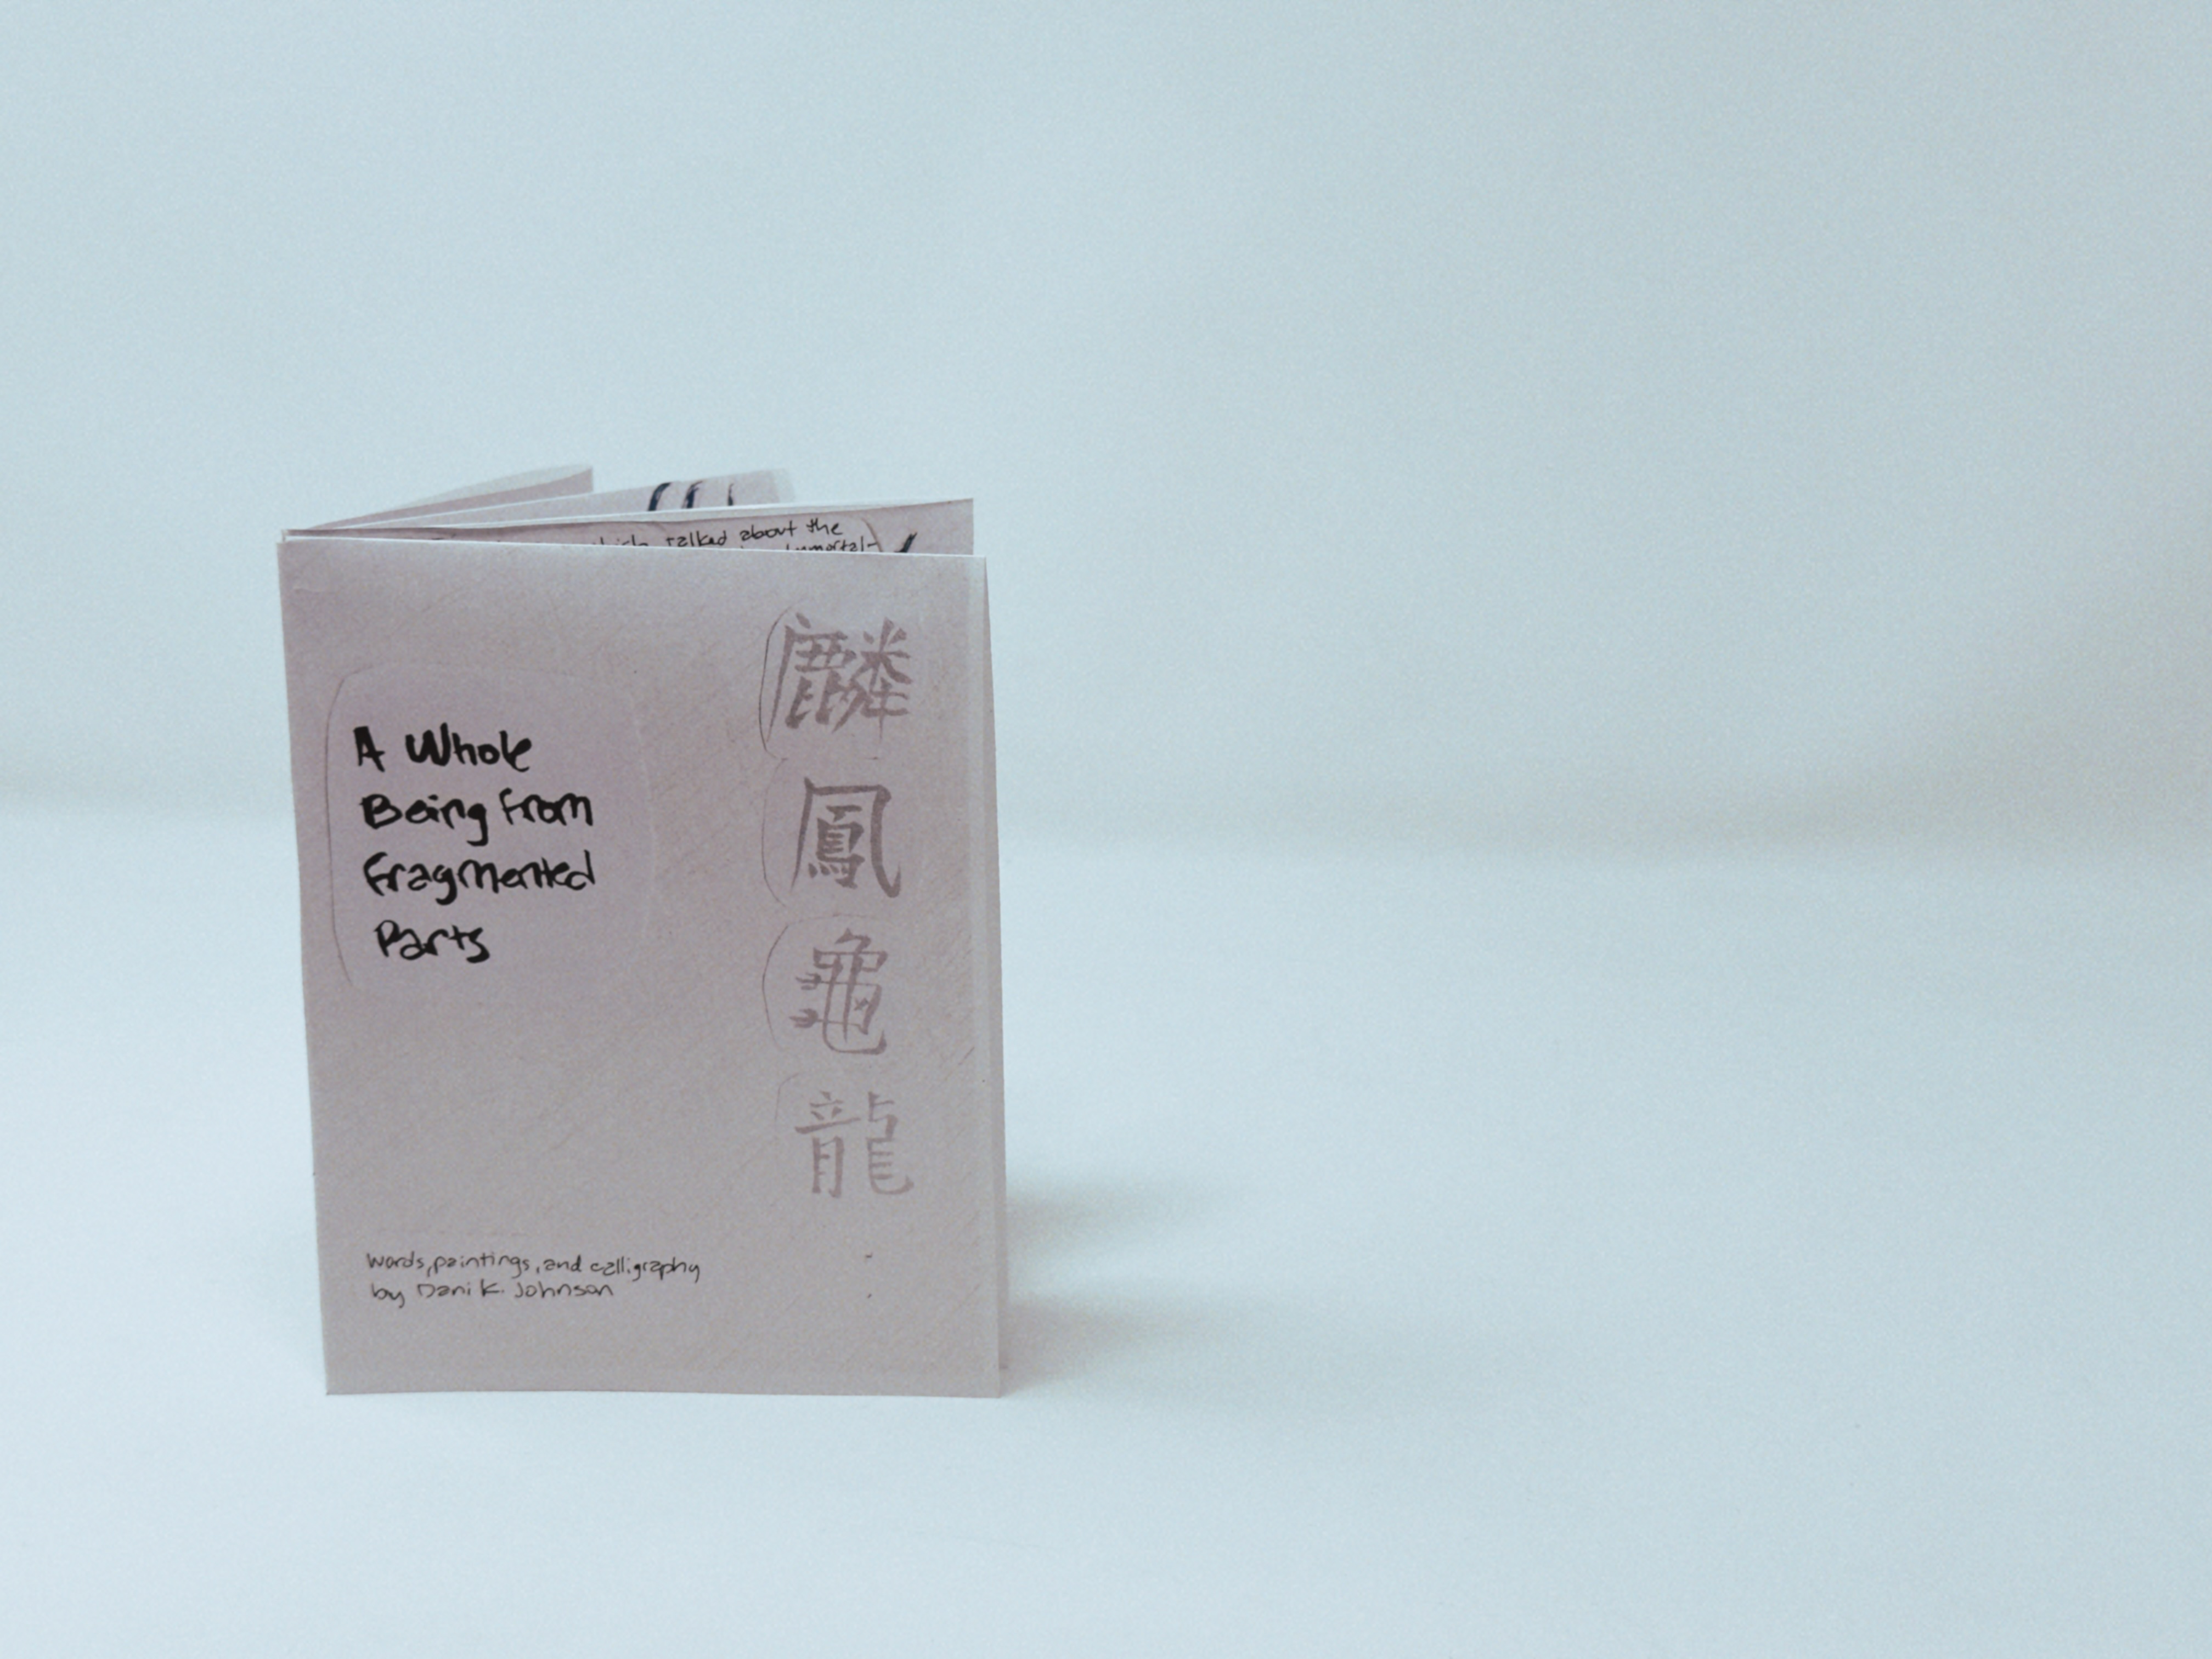 talked about the
immortal-
A Whole
Being from
Fragmented
Parts
麟
鳳
龜
龍
words, paintings, and calligraphy
by Dani K. Johnson